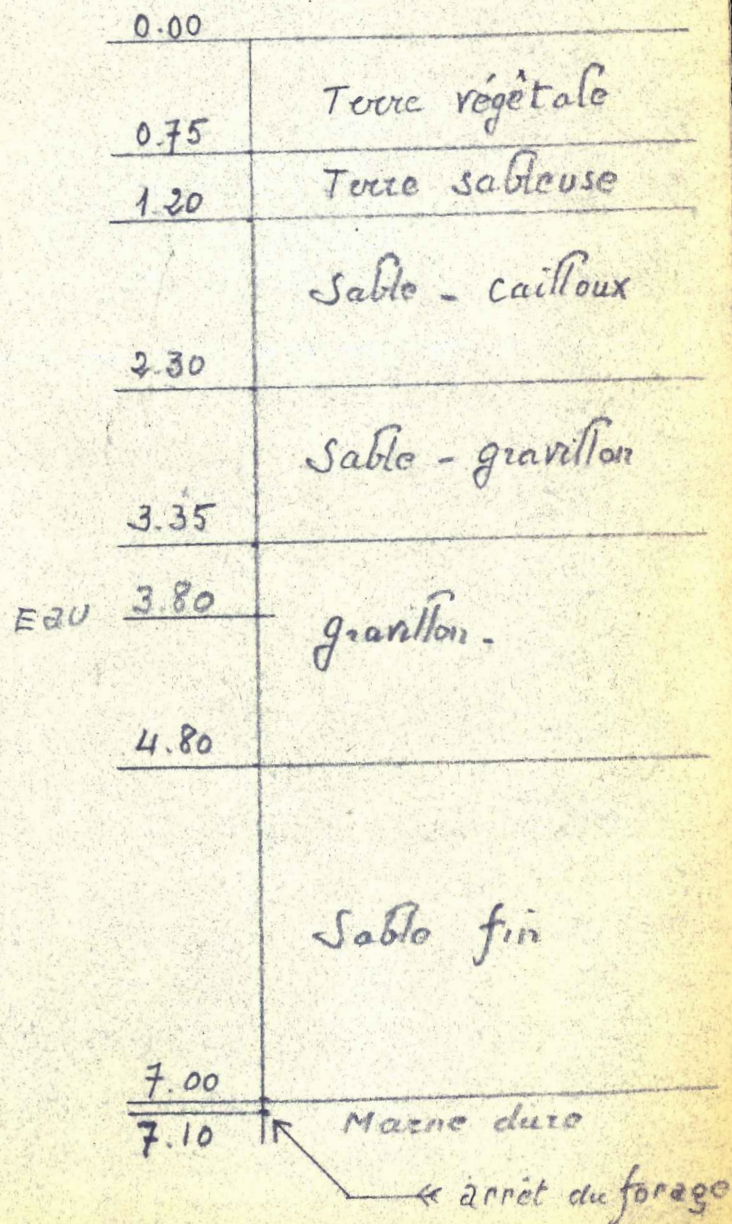 0.00
Terre végêtale
0.75
Terre sableuse
1.20
Sable - cailloux
2.30
Sable - gravillon
3.35
Eau 3.80
gravillon -
4.80
Sable fin
7.00
Marne dure
7.10
arrêt du forage